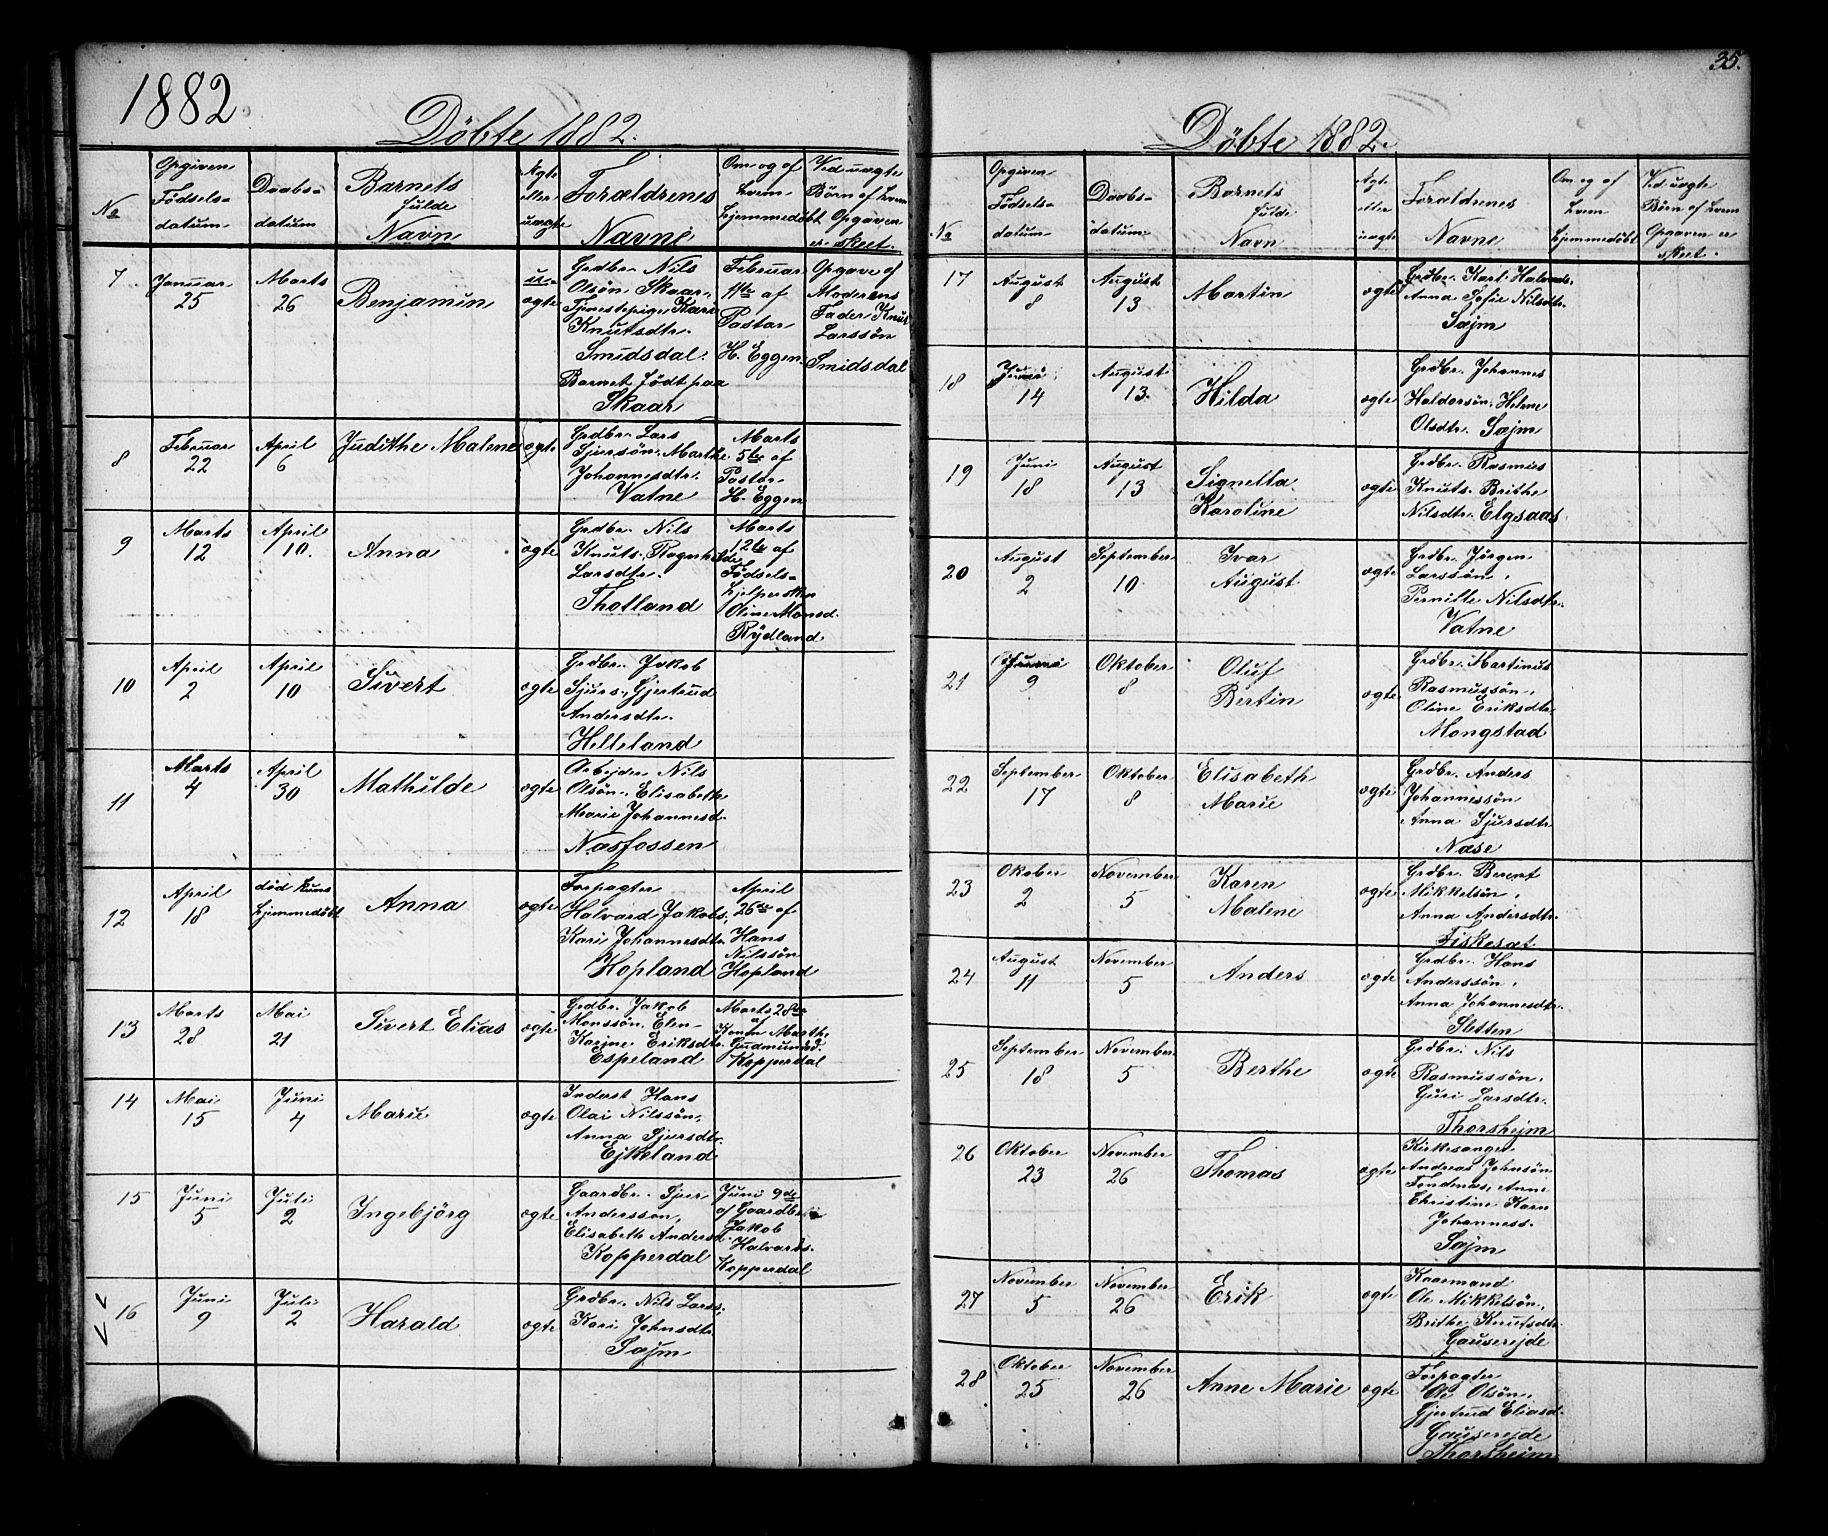 1882.
Döbte 1882.
No
Opgiven
Födsels-
datum
Daabs-
datum
Barnets
fulde
Navn
Ægte
eller
uægte
Forældrenes
Navne
Om og af
hvem
hjemmedöbt
Ved uægte
Börn af hvem
Opgaven
er skeet.
7
Januar
25
Marts
26
Benjamin
u-
ægte
Grdbr. Nils
Olsön Skaar,
Tjenestepige Kari
Knutsdtr.
Smidsdal.
Barnet födt paa
Skaar
Februar
11te af
Pastor
H. Eggen.
Opgave af
Moderens
Fader Knut
Larssön
Smidsdal
8
Februar
22
April
6
Judithe Malene
ægte
Grdbr. Lars
Sjursön, Marthe
Johannesdtr.
Vatne
Marts
5te af
Pastor
H. Eggen
9
Marts
12
April
10.
Anna
ægte
Grdbr. Nils
Knuts., Ragnhilde
Larsdtr.
Thotland
Marts
12te af
Födsels-
hjelpersken
Oline Monsd.
Rydland
10
April
2
April
10
Sivert
ægte
Grdbr. Jakob
Sjurs., Gjertrud
Andersdtr.
Helleland
11
Marts
4
April
30
Mathilde
ægte
Arbejder Nils
Olsön, Elisabeth
Marie Johannesd.
Næsfossen
12
April
18
död kuns
hjemmedöbt
Anna
ægte
Forpagter
Halvard Jakobs.,
Kari Johannesdtr.
Hopland
April
26de af
Hans
Nilssön
Hopland
13
Marts
28
Mai
21
Sivert Elias
ægte
Grdbr. Jakob
Monssön, Elen
Karine Eriksdtr.
Espeland
Marts 28de
af
Konen Marthe
Gudmundsd.
Kopperdal
14
Mai
15
Juni
4
Marie
ægte
Inderst Hans
Olai Nilssön,
Anna Sjursdtr.
Ejkeland
15
Juni
5
Juli
2
Ingebjörg
ægte
Gaardbr. Sjur
Anderssön,
Elisabeth Andersd.
Kopperdal
Juni 9de
af Gaardbr.
Jakob
Halvards.
Kopperdal
16
Juni
9
Juli
2
Harald
ægte
Grdbr. Nils Larss.,
Kari Johnsdtr.
Sæjm
35.
Döbte 1882.
No
Opgiven
Födsels-
datum
Daabs-
datum
Barnets
fulde
Navn
Ægte
eller
uægte
Forældrenes
Navne
Om og af
hvem
hjemmedöbt
Ved uægte
Börn af hvem
Opgaven er
skeet.
17
August
8
August
13
Martin
ægte
Grdbr. Karl Halvards.
Anna Sofie Nilsdtr.
Sæjm
18
14
August
13.
Hilda
ægte
Grdbr. Johannes
Haldorsön, Helene
Olsdtr. Sæjm
19
Juni
18
August
13
Signella
Karoline
ægte
Grdbr. Rasmus
Knuts. Brithe
Nilsdtr. Elgsaas
20
August
2
September
10
Ivar
August
ægte
Grdbr. Jörgen
Larssön,
Pernille Nilsdtr.
Vatne
21
9
Oktober
8
Oluf
Bertin
ægte
Grdbr. Martinus
Rasmussön,
Oline Eriksdtr.
Mongstad
22
September
17
Oktober
8
Elisabeth
Marie
ægte
Grdbr. Anders
Johannessön
Anna Sjursdtr.
Næse
23
Okober
2
November
5
Karen
Malene
ægte
Grdbr. Berent
Mikkelsön,
Anna Andersdtr.
Fiskeset
24
August
11
November
5
Anders
ægte
Grdbr. Hans
Anderssön,
Anna Johannesdtr.
Sletten
25
September
18
November
5
Berthe
ægte
Grdbr. Nils
Rasmussön,
Guri Larsdtr.
Thorshejm
26
Oktober
23
November
26
Thomas
ægte
Kirkesanger
Andreas Johnsön
Tondenæs, Anne
Christine Karn
Johanness.
Sæjm
27
November
5
November
26
Erik
ægte
Kaarmand
Ole Mikkelsön,
Brithe Knutsdtr.
Gauserejde
28
Oktober
25
November
26
Anne Marie
ægte
Forpagter
Ole Olsön,
Gjertrud Eliasd.
Gauserejde
Thorsheim